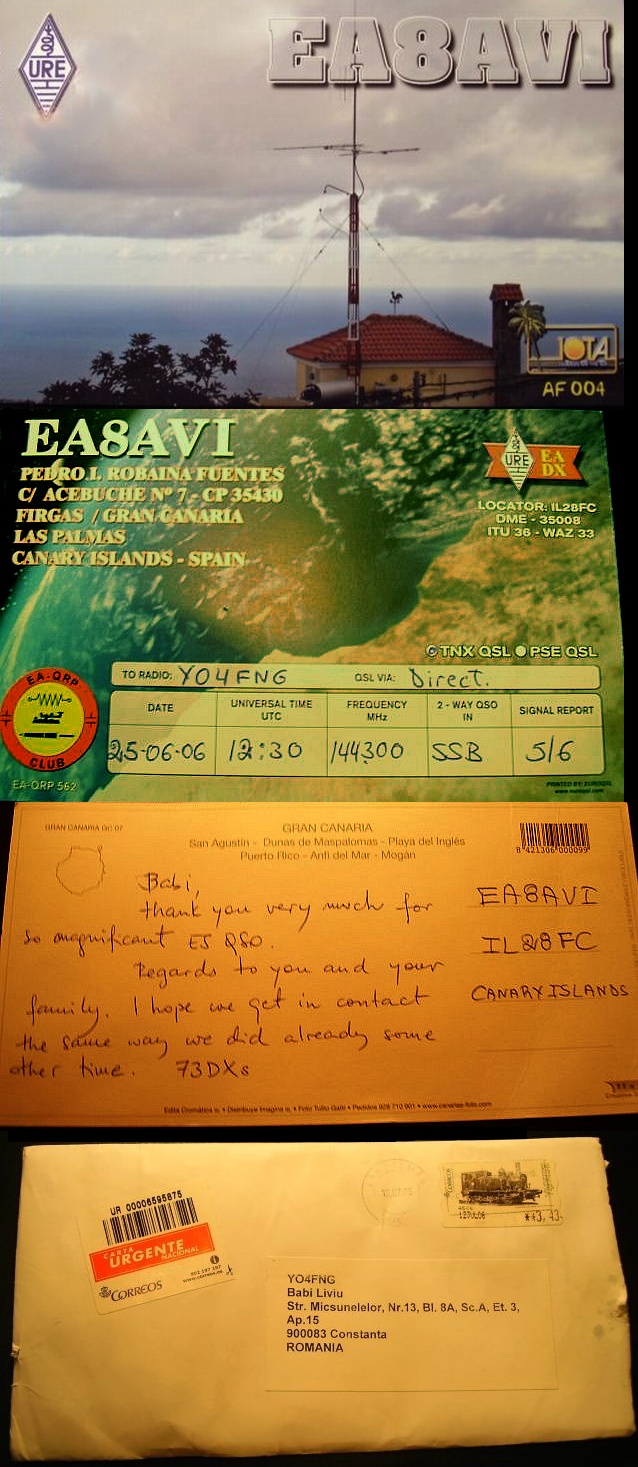 URE
EA8AVI
IOTA
AF 004
EA8AVI
PEDRO I. ROBAINA FUENTES
C/ ACEBUCHE Nº 7 - CP 35430
FIRGAS / GRAN CANARIA
LAS PALMAS
CANARY ISLANDS - SPAIN
URE
EA
DX
LOCATOR: IL28FC
DME - 35008
ITU 36 - WAZ 33
TNX QSL PSE QSL
TO RADIO: YO4FNG QSL VIA: Direct.
DATE UNIVERSAL TIME UTC FREQUENCY MHz 2 - WAY QSO IN SIGNAL REPORT
25-06-06 12:30 144300 SSB 5/6
EA-QRP
CLUB
EA-QRP 562
PRINTED BY: EUROQSL
www.euroqsl.com
GRAN CANARIA Gri: 07
GRAN CANARIA
San Agustín - Dunas de Maspalomas - Playa del Inglés
Puerto Rico - Anfi del Mar - Mogán
8 421306 000099
Babi,
thank you very much for
so magnificent ES QSO.
Regards to you and your
family. I hope we get in contact
the same way we did already some
other time. 73DXs
EA8AVI
IL28FC
CANARY ISLANDS
UR 00006595875
CARTA
URGENTE
NACIONAL
902 197 197
www.correos.es
CORREOS
CORREOS
12JUL06
**3,43
YO4FNG
Babi Liviu
Str. Micsunelelor, Nr.13, Bl. 8A, Sc.A, Et. 3,
Ap.15
900083 Constanta
ROMANIA